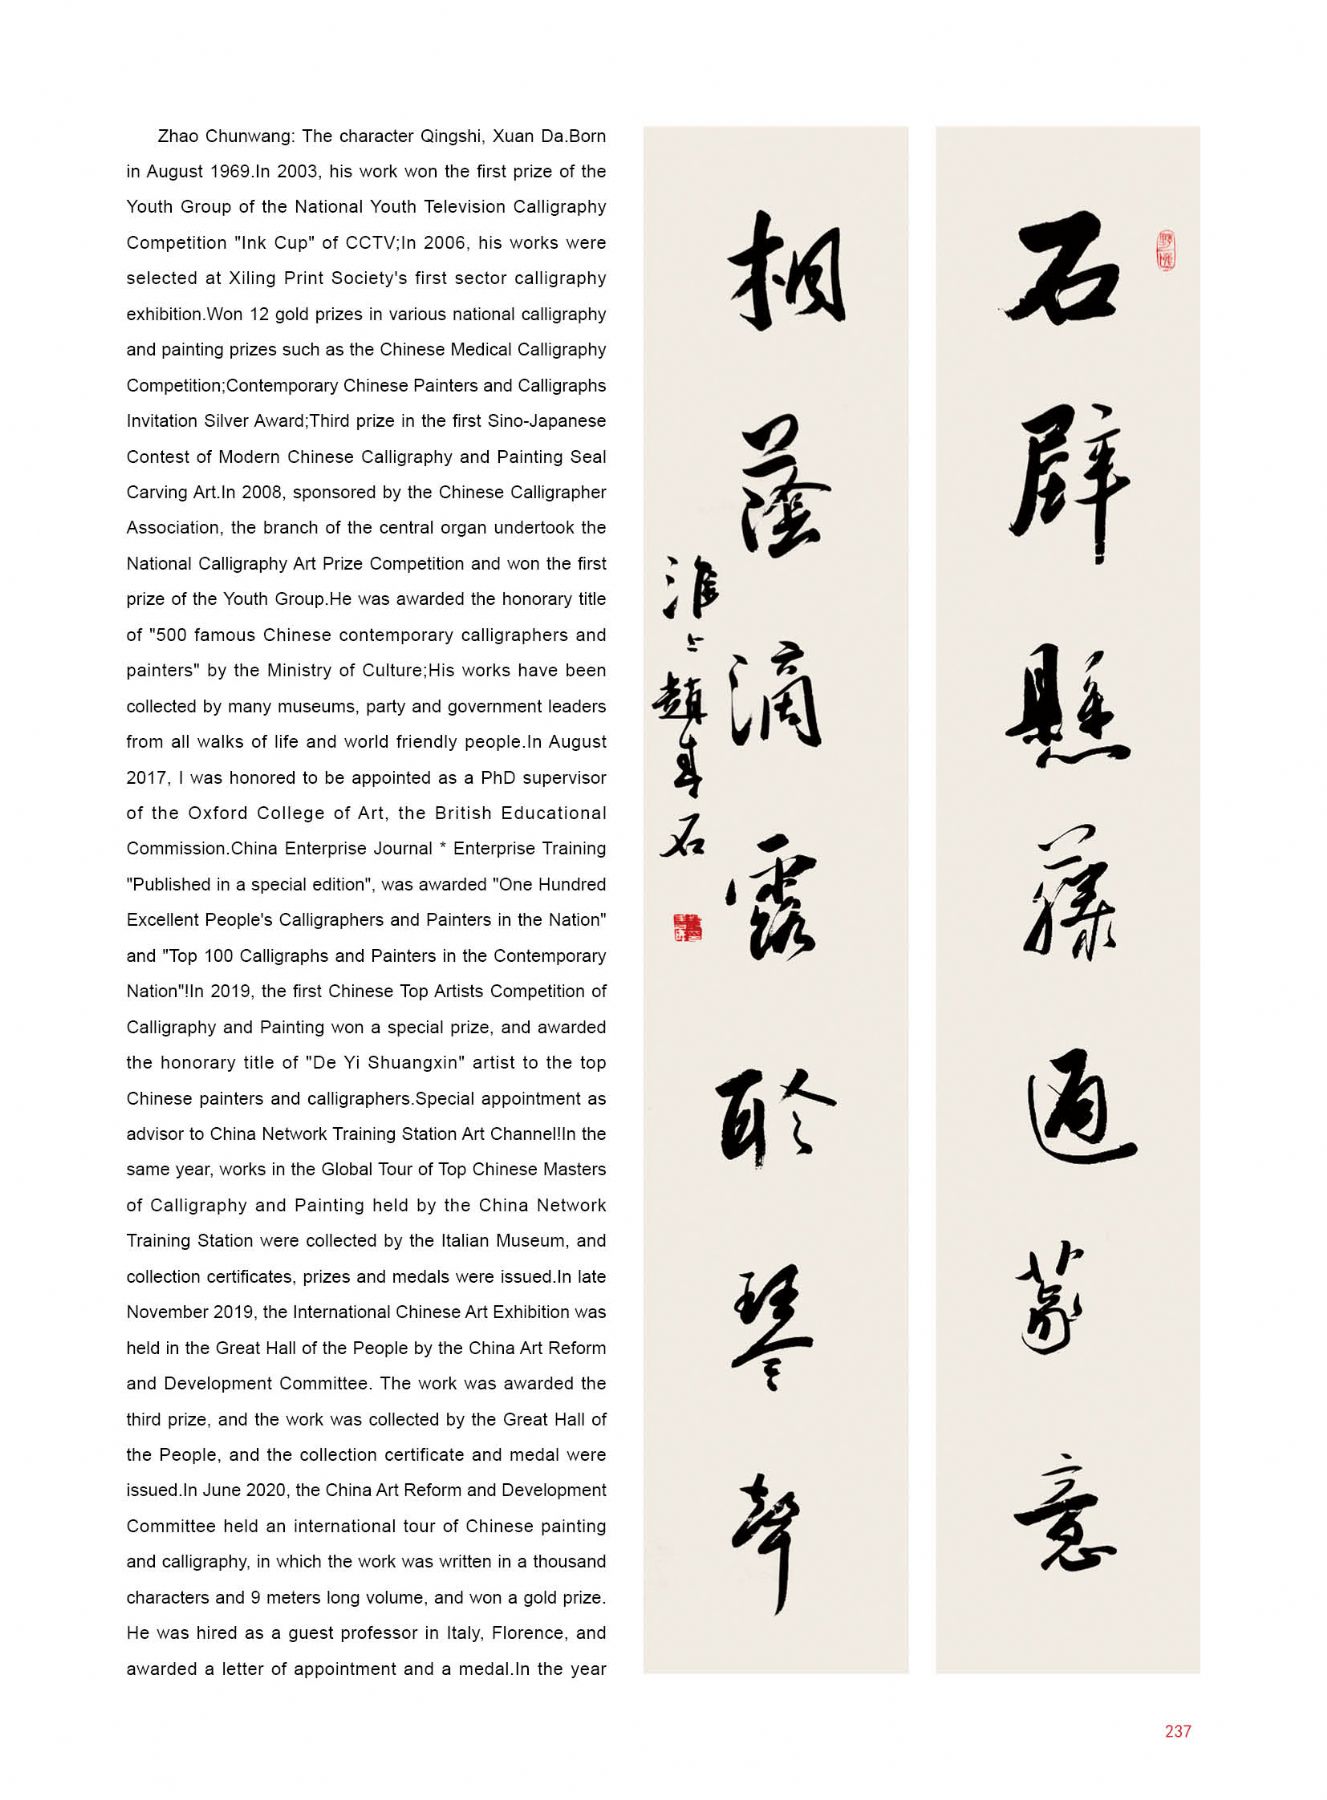 Zhao Chunwang: The character Qingshi, Xuan Da.Born
in August 1969.In 2003, his work won the first prize of the
Youth Group of the National Youth Television Calligraphy
Competition "Ink Cup" of CCTV;In 2006, his works were
selected at Xiling Print Society's first sector calligraphy
exhibition.Won 12 gold prizes in various national calligraphy
and painting prizes such as the Chinese Medical Calligraphy
Competition;Contemporary Chinese Painters and Calligraphs
Invitation Silver Award;Third prize in the first Sino-Japanese
Contest of Modern Chinese Calligraphy and Painting Seal
Carving Art.In 2008, sponsored by the Chinese Calligrapher
Association, the branch of the central organ undertook the
National Calligraphy Art Prize Competition and won the first
prize of the Youth Group.He was awarded the honorary title
of "500 famous Chinese contemporary calligraphers and
painters" by the Ministry of Culture;His works have been
collected by many museums, party and government leaders
from all walks of life and world friendly people.In August
2017, I was honored to be appointed as a PhD supervisor
of the Oxford College of Art, the British Educational
Commission.China Enterprise Journal * Enterprise Training
"Published in a special edition", was awarded "One Hundred
Excellent People's Calligraphers and Painters in the Nation"
and "Top 100 Calligraphs and Painters in the Contemporary
Nation"!In 2019, the first Chinese Top Artists Competition of
Calligraphy and Painting won a special prize, and awarded
the honorary title of "De Yi Shuangxin" artist to the top
Chinese painters and calligraphers.Special appointment as
advisor to China Network Training Station Art Channel!In the
same year, works in the Global Tour of Top Chinese Masters
of Calligraphy and Painting held by the China Network
Training Station were collected by the Italian Museum, and
collection certificates, prizes and medals were issued.In late
November 2019, the International Chinese Art Exhibition was
held in the Great Hall of the People by the China Art Reform
and Development Committee. The work was awarded the
third prize, and the work was collected by the Great Hall of
the People, and the collection certificate and medal were
issued.In June 2020, the China Art Reform and Development
Committee held an international tour of Chinese painting
and calligraphy, in which the work was written in a thousand
characters and 9 meters long volume, and won a gold prize.
He was hired as a guest professor in Italy, Florence, and
awarded a letter of appointment and a medal.In the year
石辟懸藤通篆意
桐蔭滴露聆琴聲
淮上趙春石
237